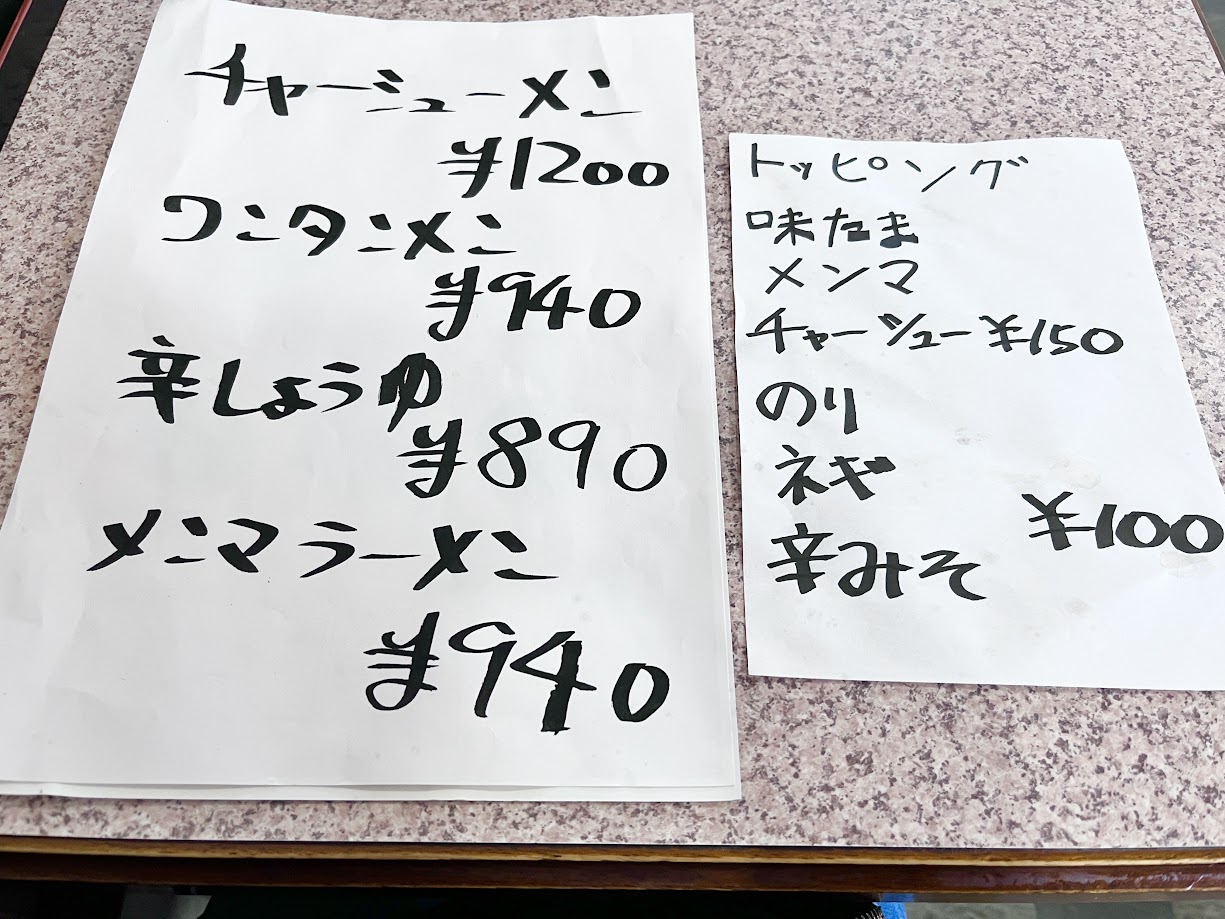 チャーシューメン
¥1200
ワンタンメン
¥940
辛しょうゆ
¥890
メンマラーメン
¥940
トッピング
味たま
メンマ
チャーシュー ¥150
のり
ネギ
¥100
辛みそ